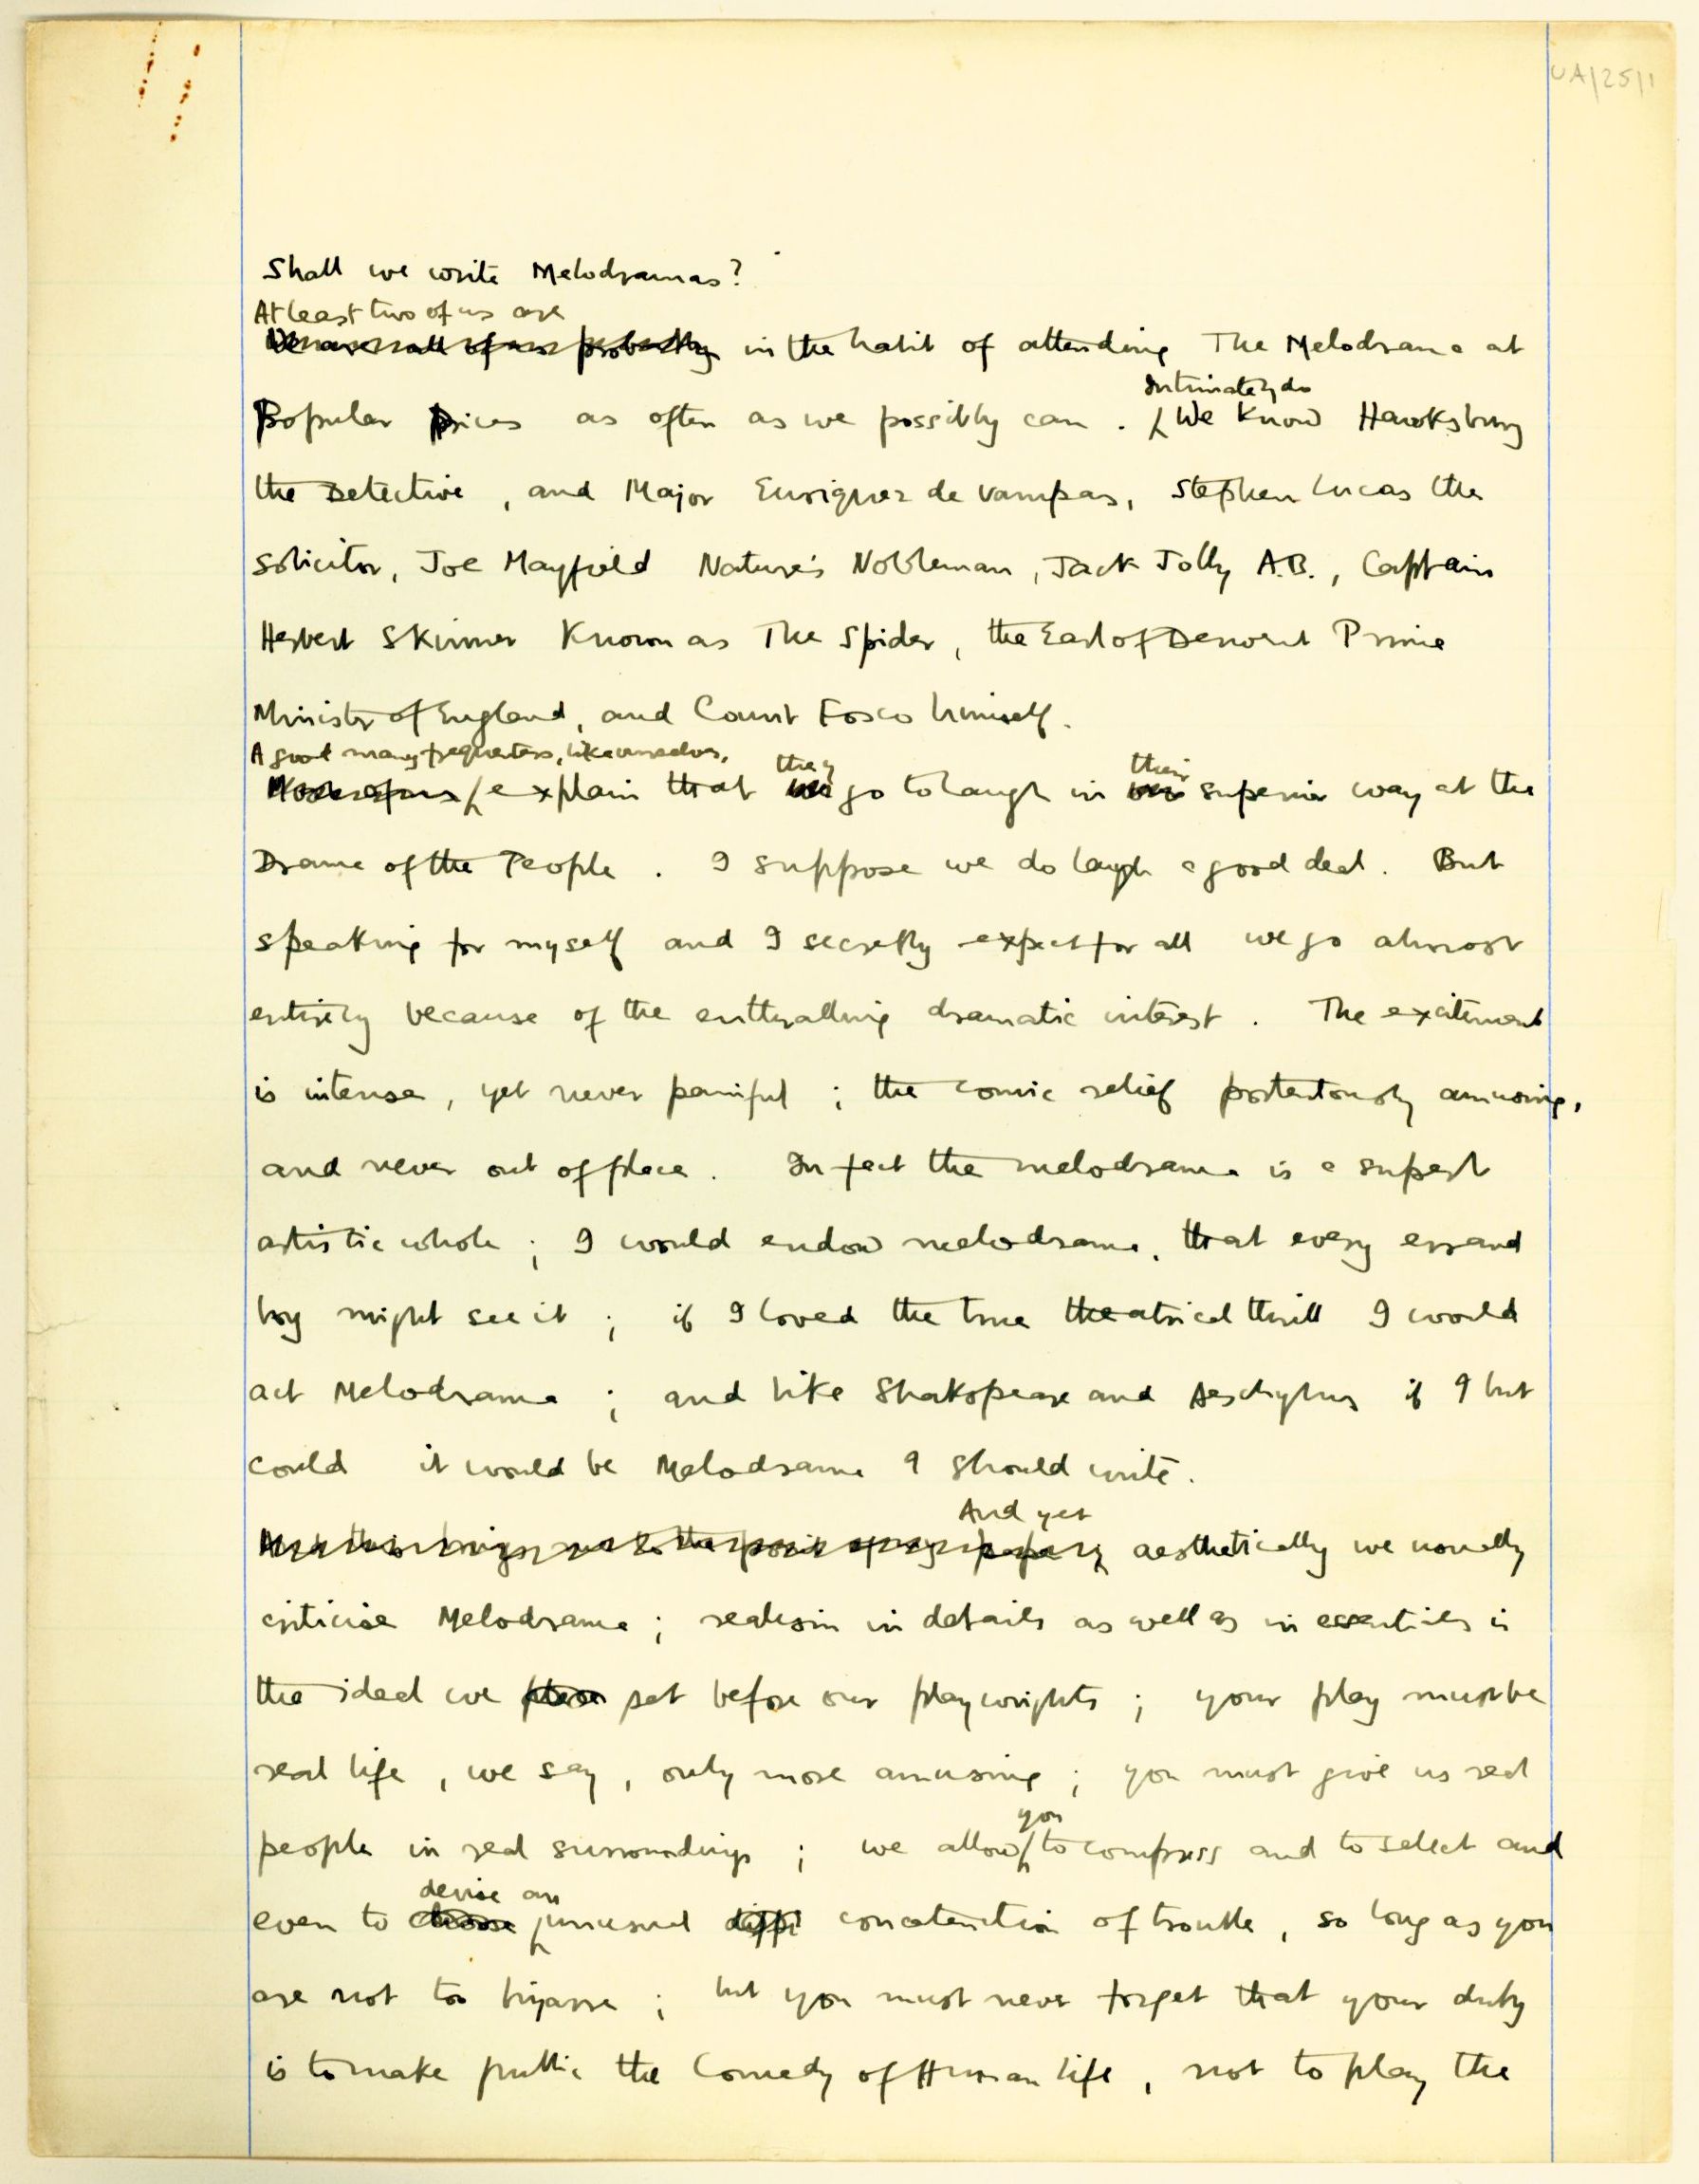 UA/25/1
Shall we write Melodramas?
At least two of us are
We are all of us probably in the habit of attending The Melodrama at
Intimately do
Popular Prices as often as we possibly can. We know Hawksbury
the Detective, and Major Enriquez de Vampas, Stephen Lucas the
solicitor, Joe Mayfield Nature's Nobleman, Jack Jolly A.B., Captain
Herbert Skinner Known as The Spider, the Earl of Derwent Prime
Minister of England, and Count Fosco himself.
A good many frequenters, like ourselves,
Most of us explain that we go to laugh in our superior way at the
they their
Drama of the People. I suppose we do laugh a good deal. But
speaking for myself and I secretly expect for all we go almost
entirely because of the enthralling dramatic interest. The excitement
is intense, yet never painful; the comic relief portentously amusing,
and never out of place. In fact the melodrama is a superb
artistic whole; I would endow melodrama, that every errand
boy might see it; if I loved the true theatrical thrill I would
act Melodrama; and like Shakspeare and Aeschylus if I but
could it would be Melodrama I should write.
And yet
And this brings me to the point of my paper; aesthetically we usually
criticise Melodrama; realism in details as well as in essentials is
the ideal we place set before our playwrights; your play must be
real life, we say, only more amusing; you must give us real
people in real surroundings; we allow you to compress and to select and
devise an
even to choose unusual concatenation of trouble, so long as you
are not too bizarre; but you must never forget that your duty
is to make public the Comedy of Human life, not to play the